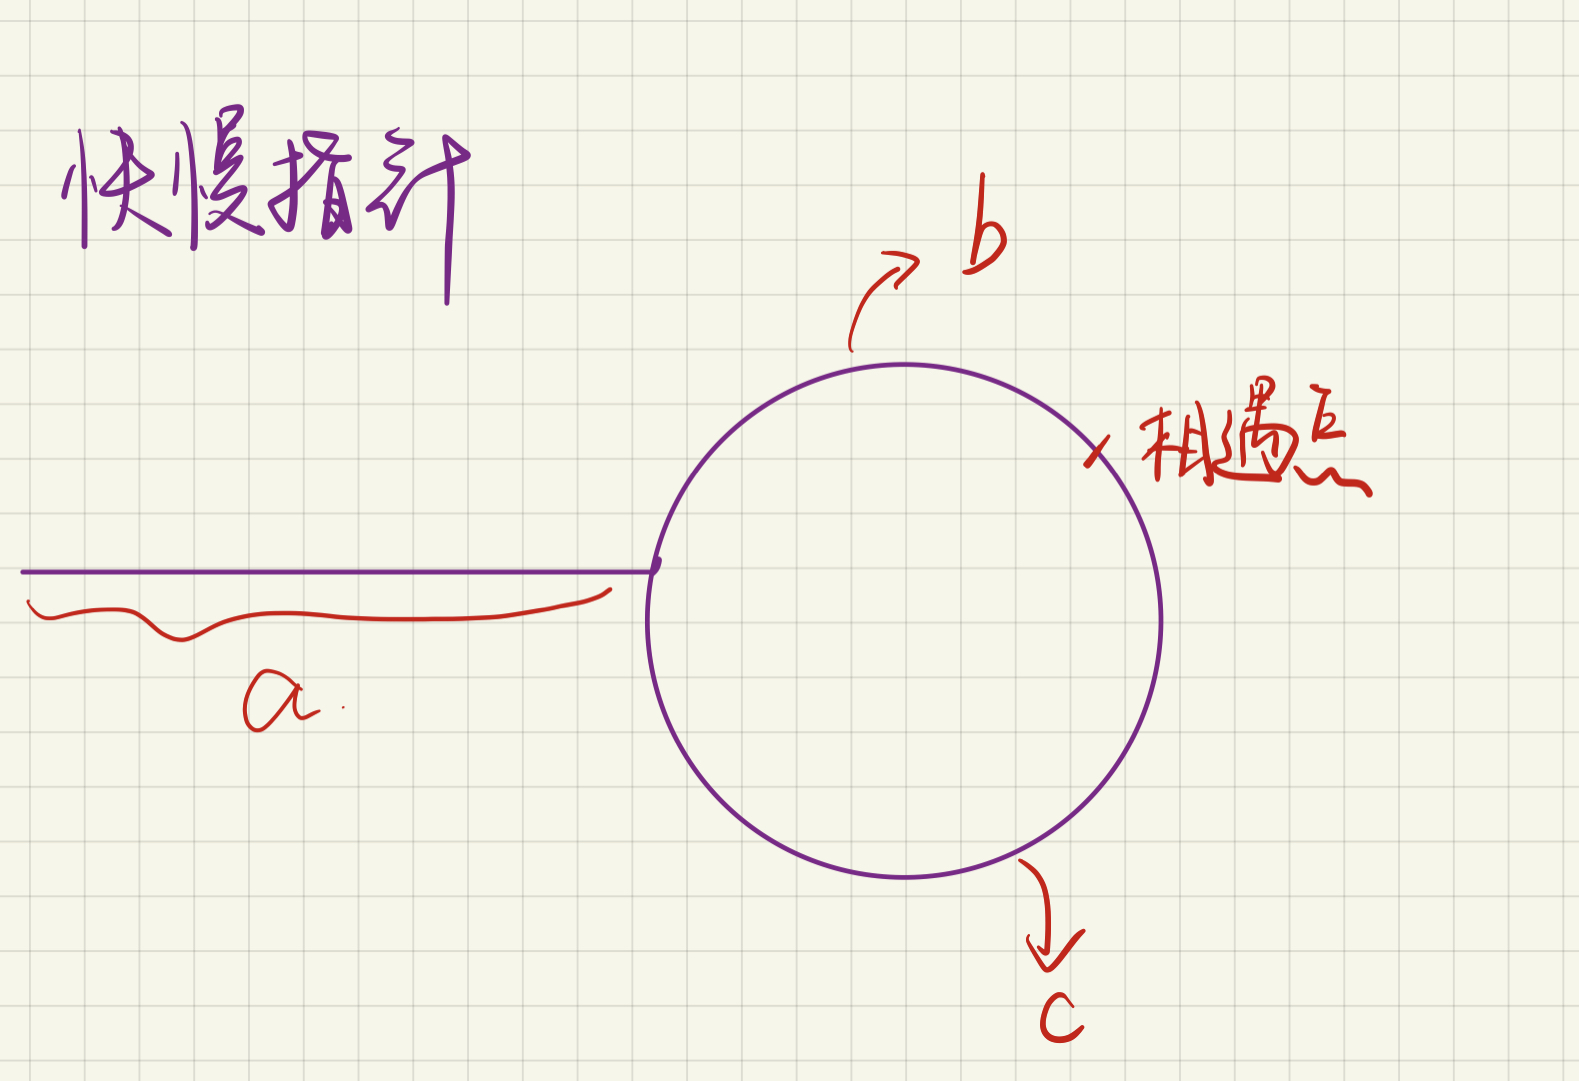 快慢指针
b
相遇点
a
c